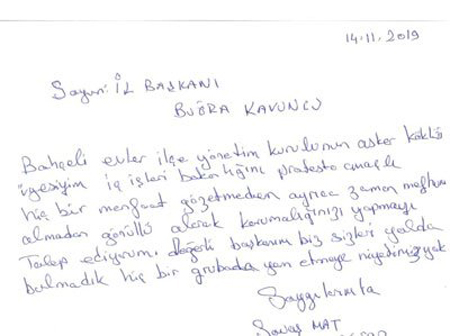 14.11.2019
Sayın: İL BAŞKANI
BUĞRA KAVUNCU
Bahçeli evler ilçe yönetim kurulunun asker köklü
üyesiyim iç işleri bakanlığını protesto amaçlı
hiç bir menfaat gözetmeden ayrıca zaman mefhumu
almadan gönüllü olarak korumalığınızı yapmayı
Talep ediyorum. değerli başkanım biz sizleri yolda
bulmadık hiç bir grubada yem etmeye niyetimiz yok
Saygılarımla
Savaş MAT